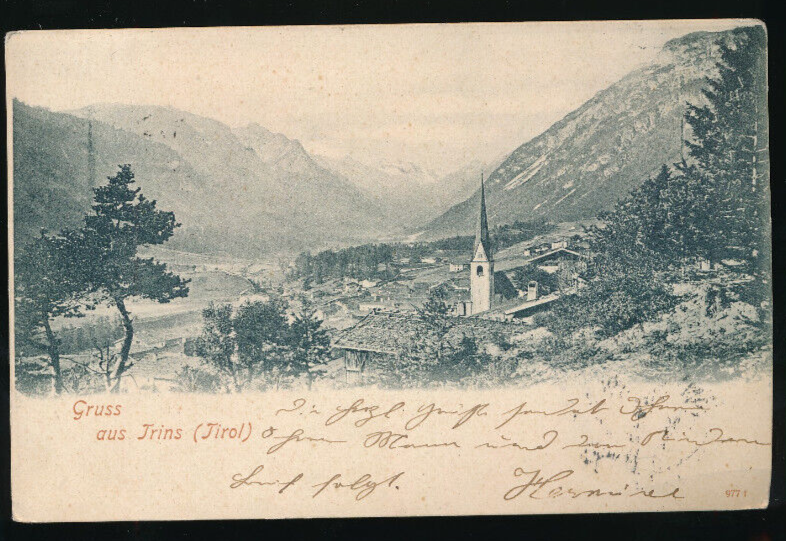 Gruss
aus Trins (Tirol)
herzl. Grüße sendet Ihnen
Ihrem Mann und den Kindern
Brief folgt. Hermine
9771